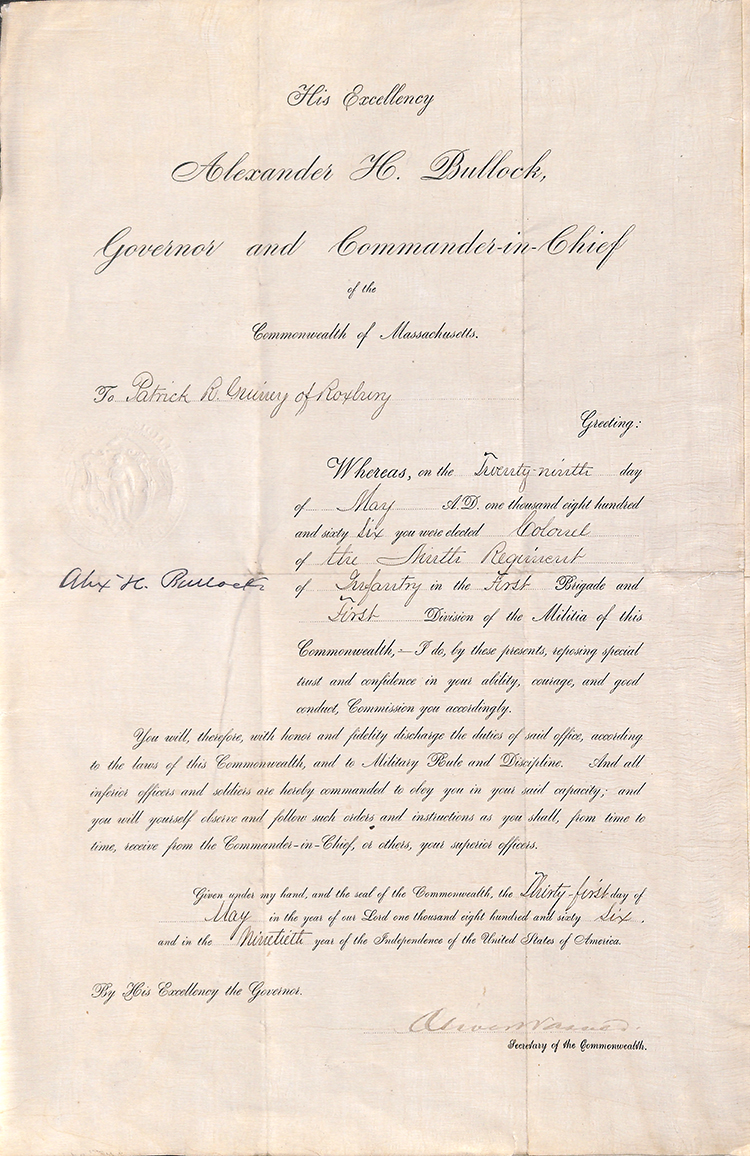 His Excellency
Alexander H. Bullock,
Governor and Commander-in-Chief
of the
Commonwealth of Massachusetts.
To Patrick R. Guiney of Roxbury
Greeting:
Whereas, on the Twenty-ninth day
of May A.D. one thousand eight hundred
and sixty Six you were elected Colonel
of the Ninth Regiment
Alex H. Bullock
of Infantry in the First Brigade and
First Division of the Militia of this
Commonwealth,— I do, by these presents, reposing special
trust and confidence in your ability, courage, and good
conduct, Commission you accordingly.
You will, therefore, with honor and fidelity discharge the duties of said office, according
to the laws of this Commonwealth, and to Military Rule and Discipline. And all
inferior officers and soldiers are hereby commanded to obey you in your said capacity; and
you will yourself observe and follow such orders and instructions as you shall, from time to
time, receive from the Commander-in-Chief, or others, your superior officers.
Given under my hand, and the seal of the Commonwealth, the Thirty-first day of
May in the year of our Lord one thousand eight hundred and sixty Six.
and in the Ninetieth year of the Independence of the United States of America.
By His Excellency the Governor.
Oliver Warner
Secretary of the Commonwealth.